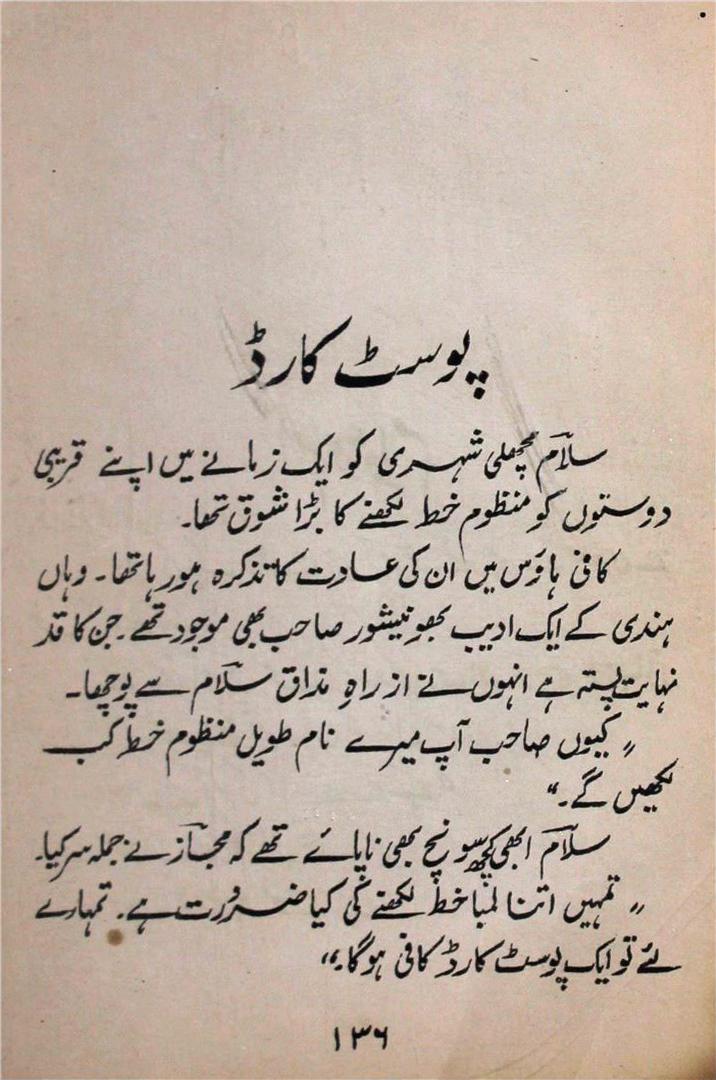 پوسٹ کارڈ
سلام مچھلی شہری کو ایک زمانے میں اپنے قریبی
دوستوں کو منظوم خط لکھنے کا بڑا شوق تھا۔
کافی ہاؤس میں ان کی عادت کا تذکرہ ہو رہا تھا۔ وہاں
ہندی کے ایک ادیب بھونیشور صاحب بھی موجود تھے۔ جن کا قد
نہایت پستہ ہے انہوں نے از راہِ مذاق سلام سے پوچھا۔
”کیوں صاحب آپ میرے نام طویل منظوم خط کب
لکھیں گے۔“
سلام ابھی کچھ سونچ بھی نا پائے تھے کہ مجاز نے جملہ سر کیا۔
”تمہیں اتنا لمبا خط لکھنے کی کیا ضرورت ہے۔ تمہارے
لئے تو ایک پوسٹ کارڈ کافی ہوگا۔“
۱۳۶